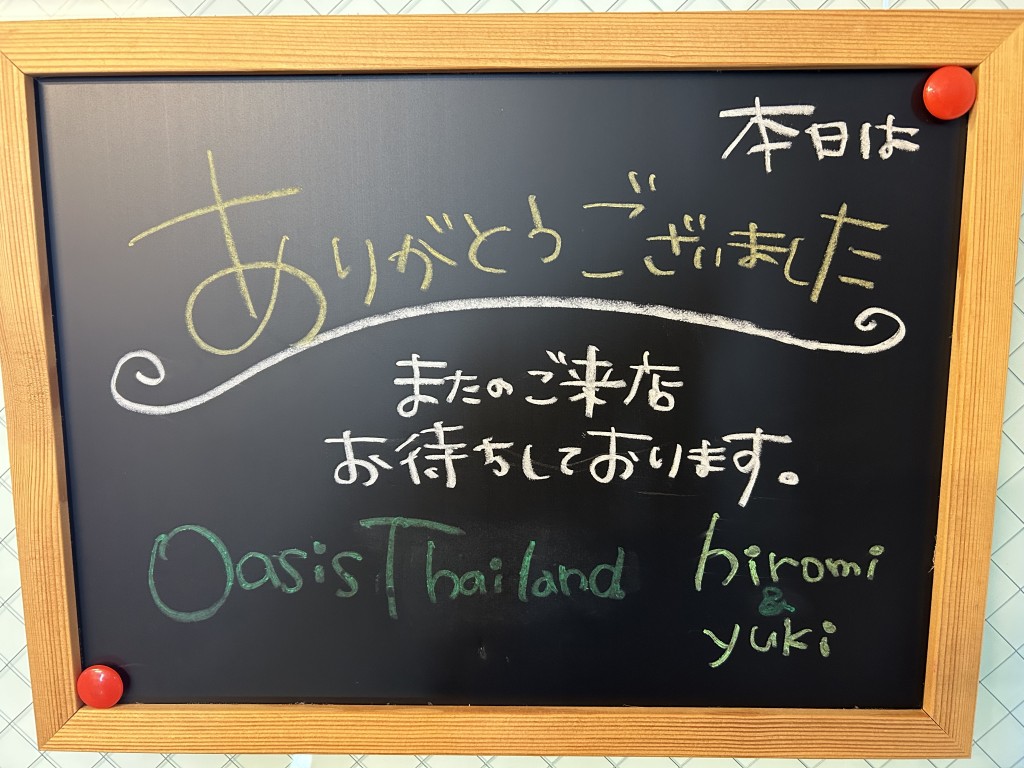 本日は
ありがとうございました
またのご来店
お待ちしております。
Oasis Thailand
hiromi
&
yuki